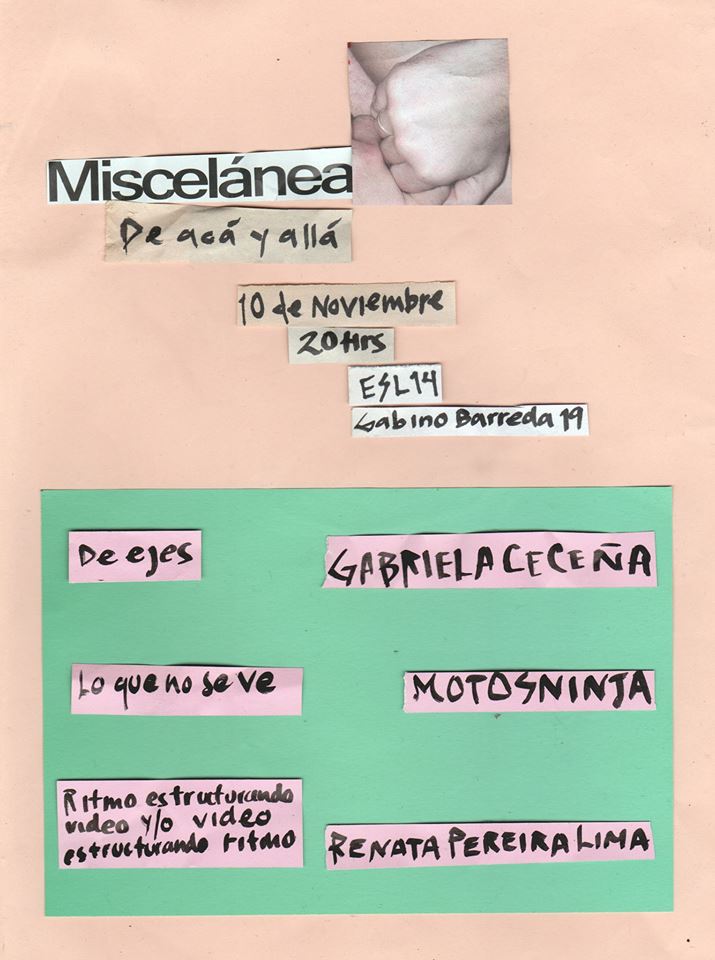 Miscelánea
De acá y allá
10 de Noviembre
20Hrs
ESL14
Gabino Barreda 19
De ejes
GABRIELA CECEÑA
Lo que no se ve
MOTOSNINJA
Ritmo estructurando
video y/o video
estructurando ritmo
RENATA PEREIRA LIMA